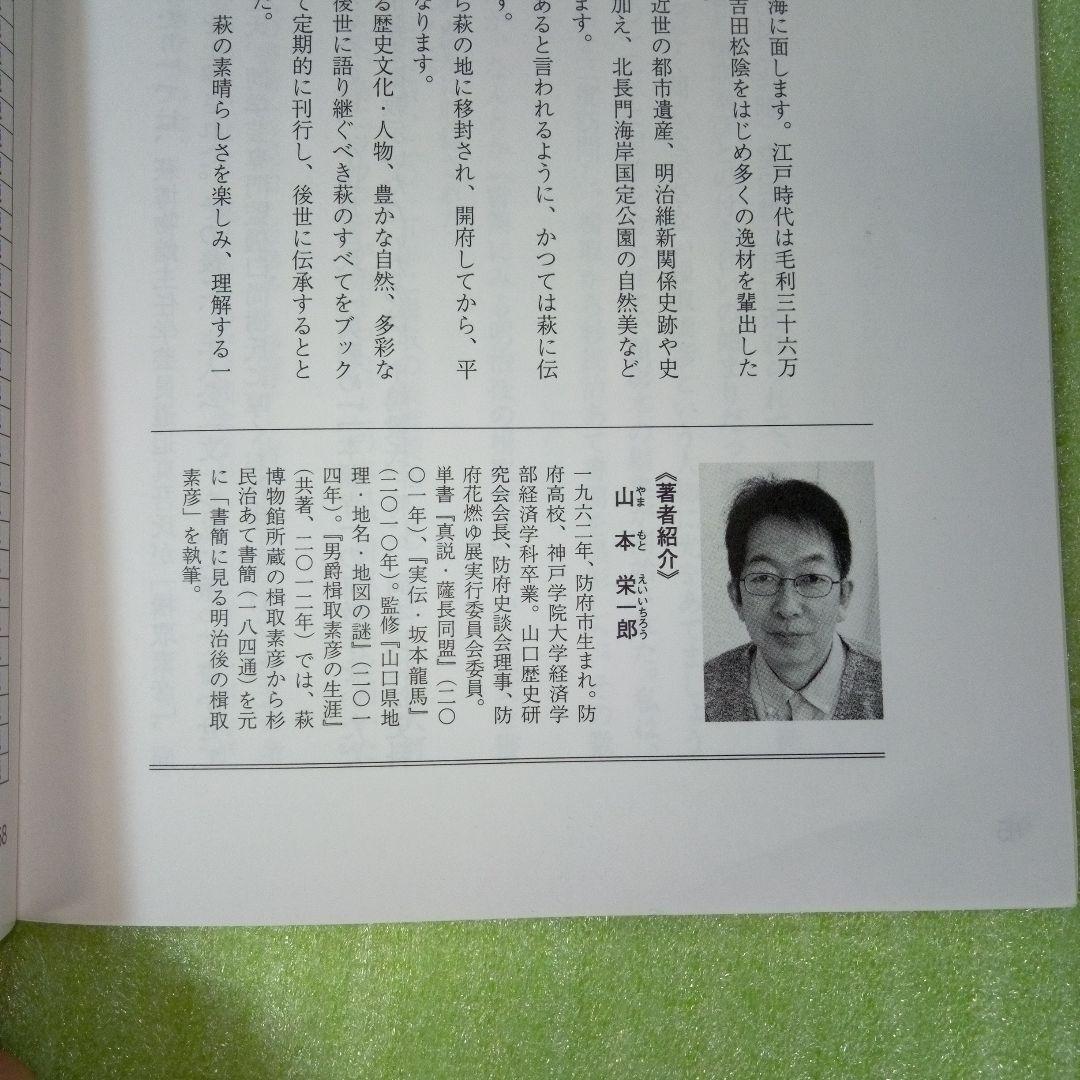 海に面します。江戸時代は毛利三十六万
吉田松陰をはじめ多くの逸材を輩出した
近世の都市遺産、明治維新関係史跡や史
加え、北長門海岸国定公園の自然美など
ます。
あると言われるように、かつては萩に伝
す。
ら萩の地に移封され、開府してから、平
なります。
る歴史文化・人物、豊かな自然、多彩な
後世に語り継ぐべき萩のすべてをブック
て定期的に刊行し、後世に伝承するとと
た。
萩の素晴らしさを楽しみ、理解する一
《著者紹介》
山本 栄一郎
やま もと えいいちろう
一九六二年、防府市生まれ。防
府高校、神戸学院大学経済学
部経済学科卒業。山口歴史研
究会会長、防府史談会理事、防
府花燃ゆ展実行委員会委員。
単書『真説・薩長同盟』(二〇
〇一年)、『実伝・坂本龍馬』
(二〇一〇年)。監修『山口県地
理・地名・地図の謎』(二〇一
四年)。『男爵楫取素彦の生涯』
(共著、二〇一二年)では、萩
博物館所蔵の楫取素彦から杉
民治あて書簡(一八四通)を元
に「書簡に見る明治後の楫取
素彦」を執筆。
68